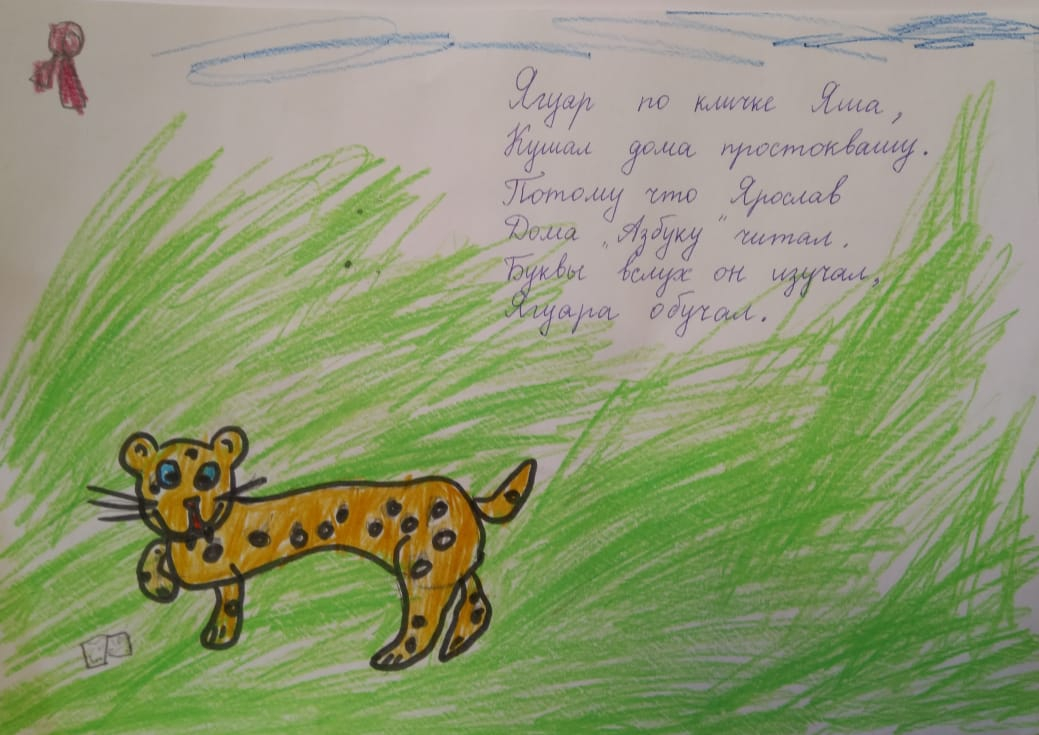 Ягуар по кличке Яша,
Кушал дома простоквашу.
Потому что Ярослав
Дома „Азбуку" читал.
Буквы вслух он изучал,
Ягуара обучал.